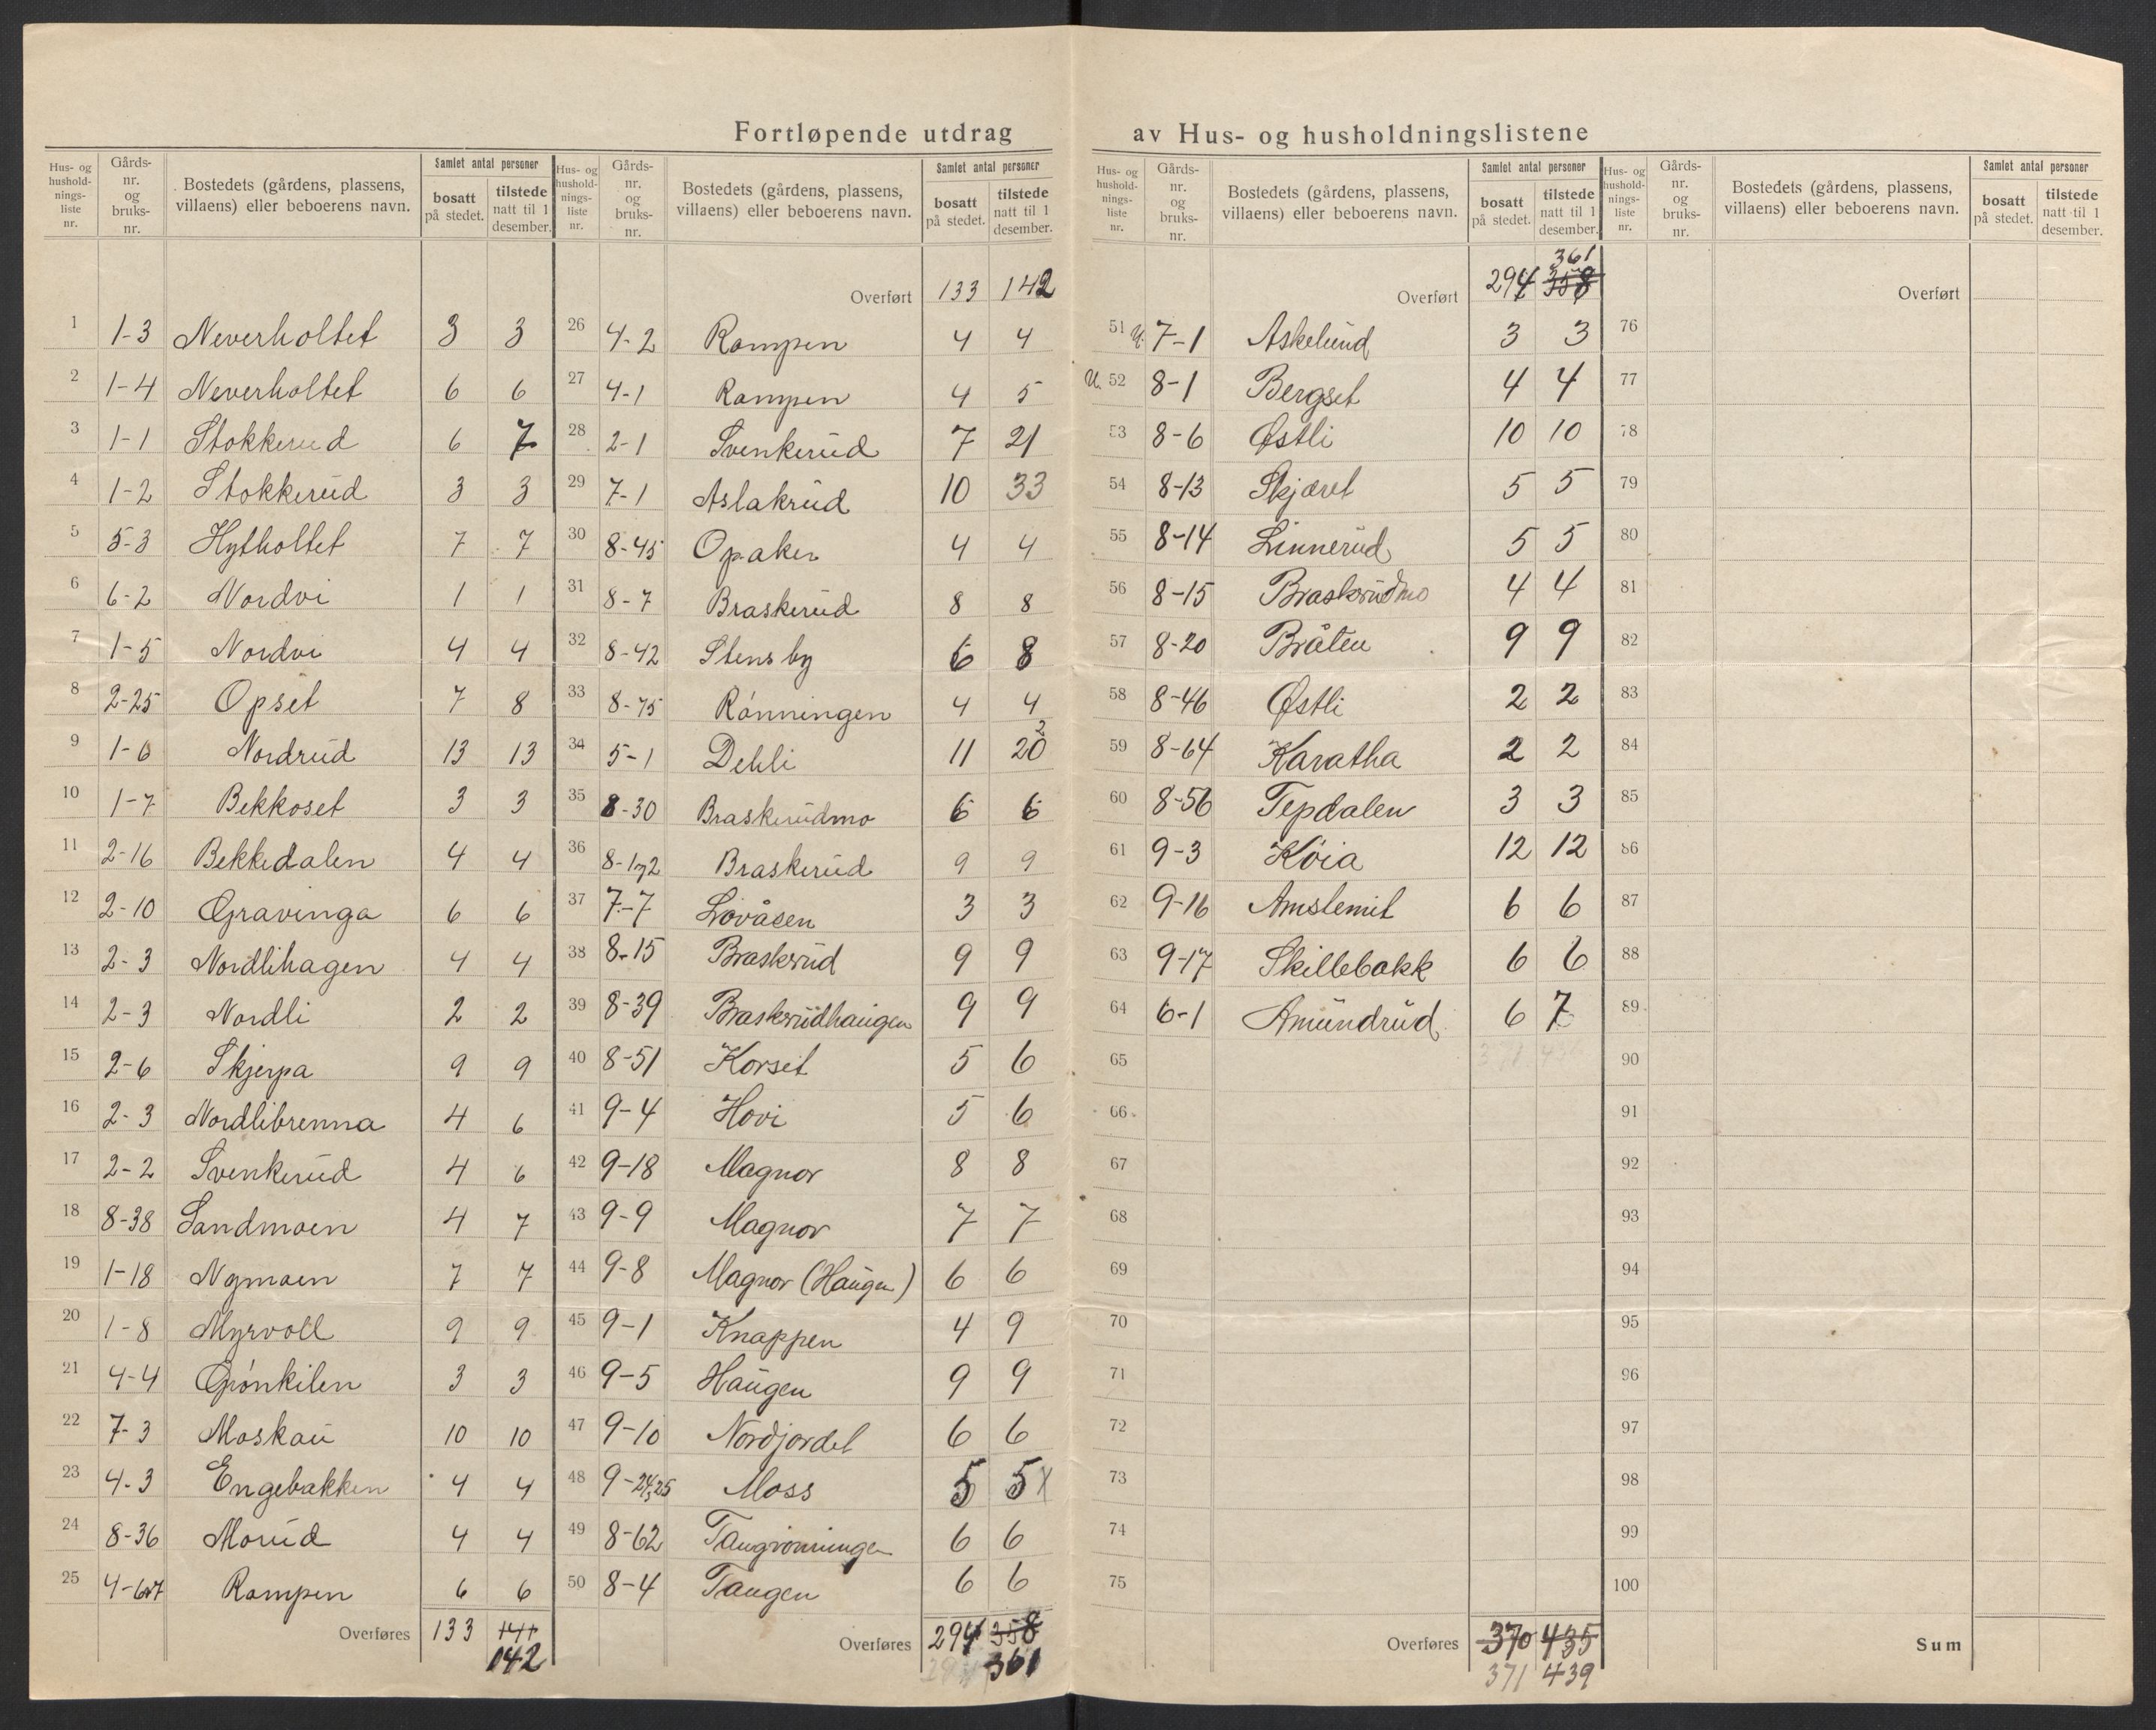 Fortløpende utdrag av Hus- og husholdningslistene
Hus- og hushold-nings-liste nr. Gårds-nr. og bruks-nr. Bostedets (gårdens, plassens, villaens) eller beboerens navn. Samlet antal personer bosatt på stedet. tilstede natt til 1 desember.
1 1-3 Neverholtet 3 3
2 1-4 Neverholtet 6 6
3 1-1 Stokkerud 6 7
4 1-2 Stokkerud 3 3
5 5-3 Hytholtet 7 7
6 6-2 Nordvi 1 1
7 1-5 Nordvi 4 4
8 2-25 Opset 7 8
9 1-6 Nordrud 13 13
10 1-7 Bekkoset 3 3
11 2-16 Bekkedalen 4 4
12 2-10 Gravinga 6 6
13 2-3 Nordlihagen 4 4
14 2-3 Nordli 2 2
15 2-6 Skjerpa 9 9
16 2-3 Nordlibrenna 4 6
17 2-2 Svenkerud 4 6
18 8-38 Sandmoen 4 7
19 1-18 Nymoen 7 7
20 1-8 Myrvoll 9 9
21 4-4 Grönkilen 3 3
22 7-3 Moskau 10 10
23 4-3 Engebakken 4 4
24 8-36 Morud 4 4
25 Rampen 6 6
Overføres 133 141
142
Hus- og hushold-nings-liste nr. Gårds-nr. og bruks-nr. Bostedets (gårdens, plassens, villaens) eller beboerens navn. Samlet antal personer bosatt på stedet. tilstede natt til 1 desember.
Overført 133 142
26 4-2 Rampen 4 4
27 4-1 Rampen 4 5
28 2-1 Svenkerud 7 21
29 7-1 Aslakrud 10 33
30 8-45 Opaker 4 4
31 8-7 Braskerud 8 8
32 8-42 Stensby 6 8
33 8-75 Rönningen 4 4
34 5-1 Dehli 11 20 2
35 8-30 Braskerudmo 6 6
36 8-1,2 Braskerud 9 9
37 7-7 Lövåsen 3 3
38 8-15 Braskrud 9 9
39 8-39 Braskerudhaugen 9 9
40 8-51 Korset 5 6
41 9-4 Hovi 5 6
42 9-18 Magnor 8 8
43 9-9 Magnor 7 7
44 9-8 Magnor (Haugen) 6 6
45 9-1 Knappen 4 9
46 9-5 Haugen 9 9
47 9-10 Nordjordet 6 6
48 9-24,25 Moss 5 5 x
49 8-62 Taugrönningen 6 6
50 8-4 Taugen 6 6
Overføres 294 358
361
Hus- og hushold-nings-liste nr. Gårds-nr. og bruks-nr. Bostedets (gårdens, plassens, villaens) eller beboerens navn. Samlet antal personer bosatt på stedet. tilstede natt til 1 desember.
361
Overført 294 358
51 U. 7-1 Askelund 3 3
U. 52 8-1 Bergset 4 4
53 8-6 Østli 10 10
54 8-13 Skjæret 5 5
55 8-14 Linnerud 5 5
56 8-15 Braskerudmo 4 4
57 8-20 Bråten 9 9
58 8-46 Østli 2 2
59 8-64 Karatha 2 2
60 8-56 Tepdalen 3 3
61 9-3 Köia 12 12
62 9-16 Amstemit 6 6
63 9-17 Skillebakk 6 6
64 6-1 Amundrud 6 7
65
66
67
68
69
70
71
72
73
74
75
Overføres 370 435
371 439
Hus- og hushold-nings-liste nr. Gårds-nr. og bruks-nr. Bostedets (gårdens, plassens, villaens) eller beboerens navn. Samlet antal personer bosatt på stedet. tilstede natt til 1 desember.
Overført
76
77
78
79
80
81
82
83
84
85
86
87
88
89
90
91
92
93
94
95
96
97
98
99
100
Sum